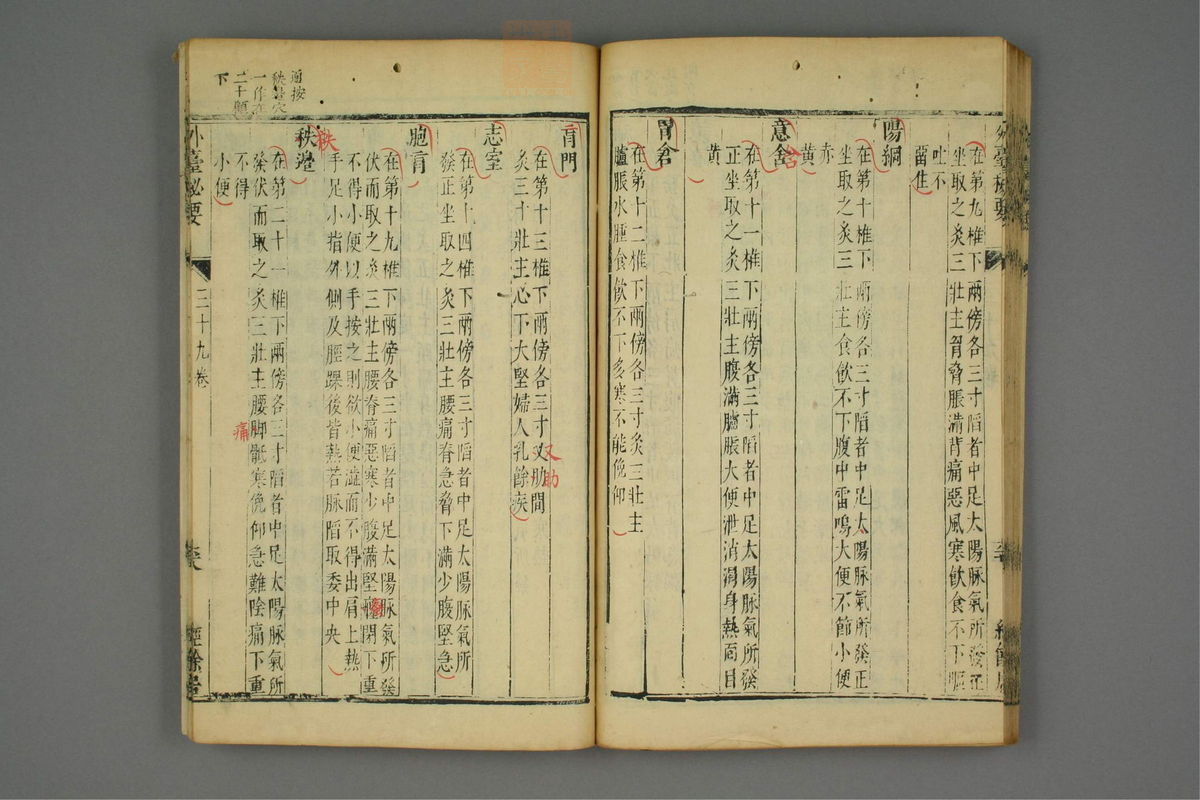 在第九椎下兩傍各三寸䧟者中足太陽脉氣所發正
坐取之灸三壯主胷脅脹滿背痛惡風寒飲食不下嘔
吐不
畱住
陽綱
在第十椎下兩傍各三寸䧟者中足太陽脉氣所發正
坐取之灸三壯主食飲不下腹中雷鳴大便不節小便
赤
黃
意舍
舍
在第十一椎下兩傍各三寸䧟者中足太陽脉氣所發
正坐取之灸三壯主腹滿臚脹大便泄消渴身熱面目
黃
胃倉
在第十二椎下兩傍各三寸灸三壯主
臚脹水腫食飲不下多寒不能俛仰
肓門
在第十三椎下兩傍各三寸叉肋間
叉肋
灸三十壯主心下大堅婦人乳餘疾
志室
在第十四椎下兩傍各三寸䧟者中足太陽脉氣所
發正坐取之灸三壯主腰痛脊急脅下滿少腹堅急
胞肓
在第十九椎下兩傍各三寸䧟者中足太陽脉氣所發
伏而取之灸三壯主腰脊痛惡寒少腹滿堅癃閉下重
不得小便以手按之則欲小便澁而不得出肩上熱
手足小指外側及脛踝後皆熱若脉䧟取委中央
秩邊
秩
在第二十一椎下兩傍各三寸䧟者中足太陽脉氣所
發伏而取之灸三壯主腰脚骶寒俛仰急難陰痛下重
痛
不得
小便
外臺秘要
三十九卷
經餘居
秩邊穴
一作在
二十顀
下